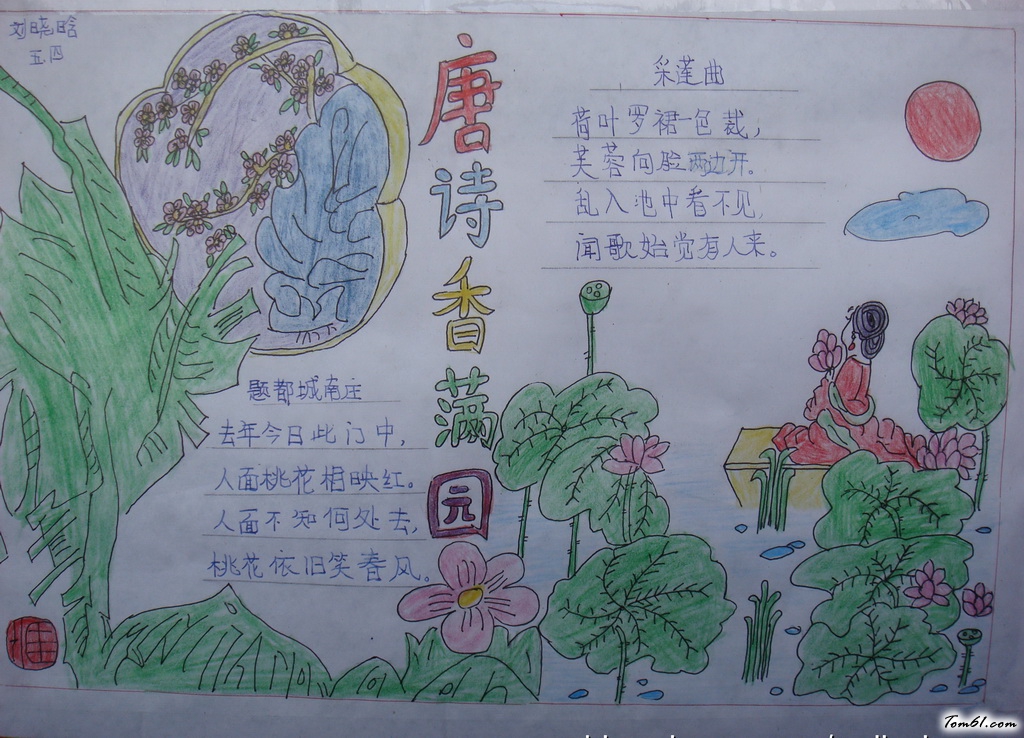 刘晓晗
五四
唐诗香满园
采莲曲
荷叶罗裙一色裁，
芙蓉向脸两边开。
乱入池中看不见，
闻歌始觉有人来。
题都城南庄
去年今日此门中，
人面桃花相映红。
人面不知何处去，
桃花依旧笑春风。
Tom61.com